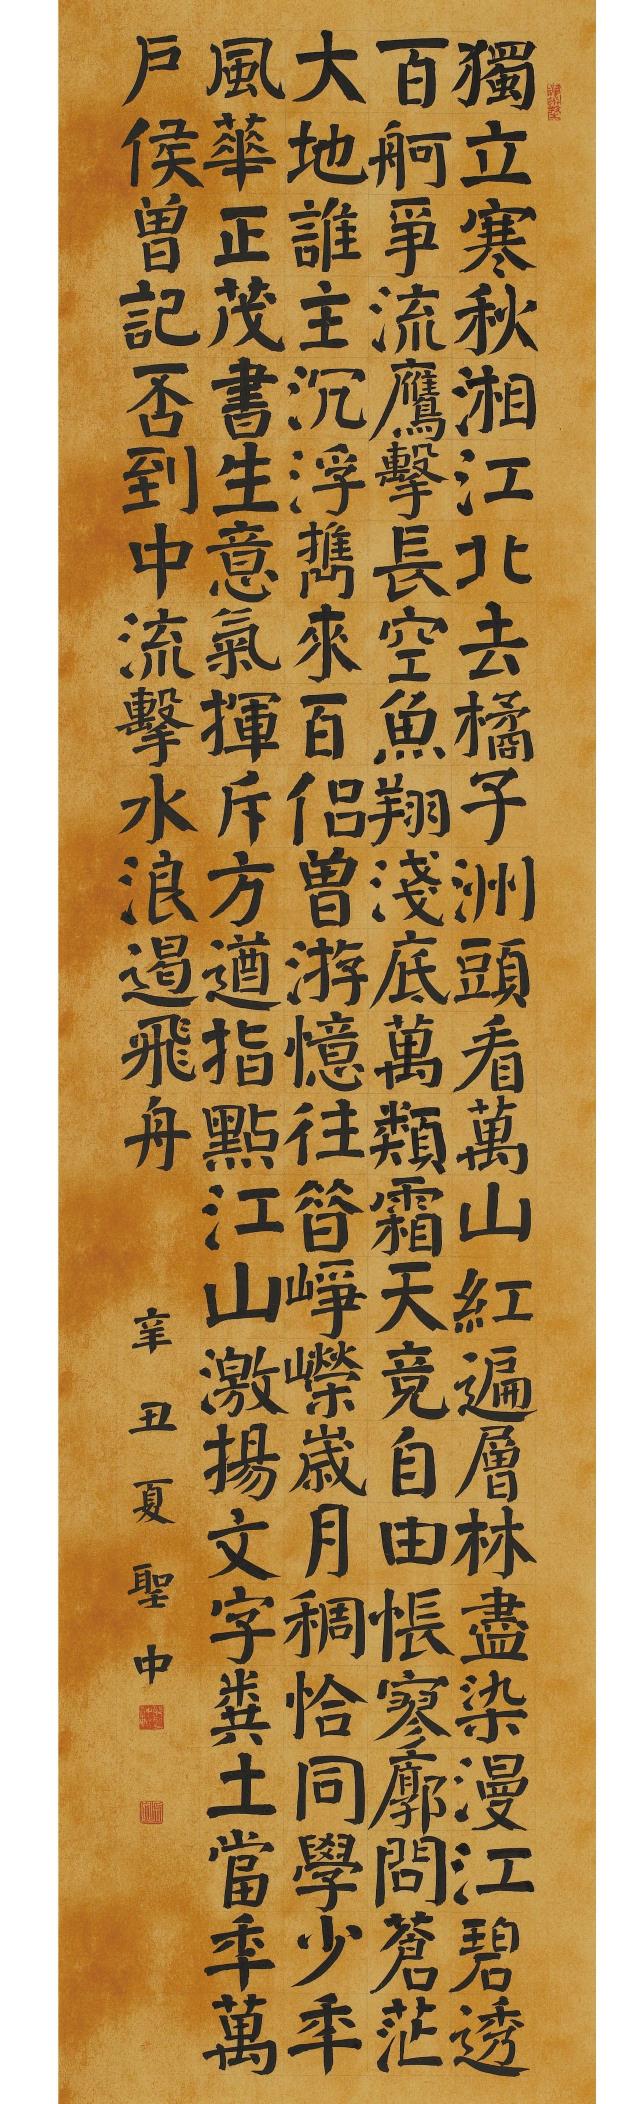 獨立寒秋湘江北去橘子洲頭看萬山紅遍層林盡染漫江碧透
百舸爭流鷹擊長空魚翔淺底萬類霜天竟自由悵寥廓問蒼茫
大地誰主沉浮攜來百侶曾游憶往昔崢嶸歲月稠恰同學少年
風華正茂書生意氣揮斥方遒指點江山激揚文字糞土當年萬
戶侯曾記否到中流擊水浪遏飛舟
辛丑夏聖中